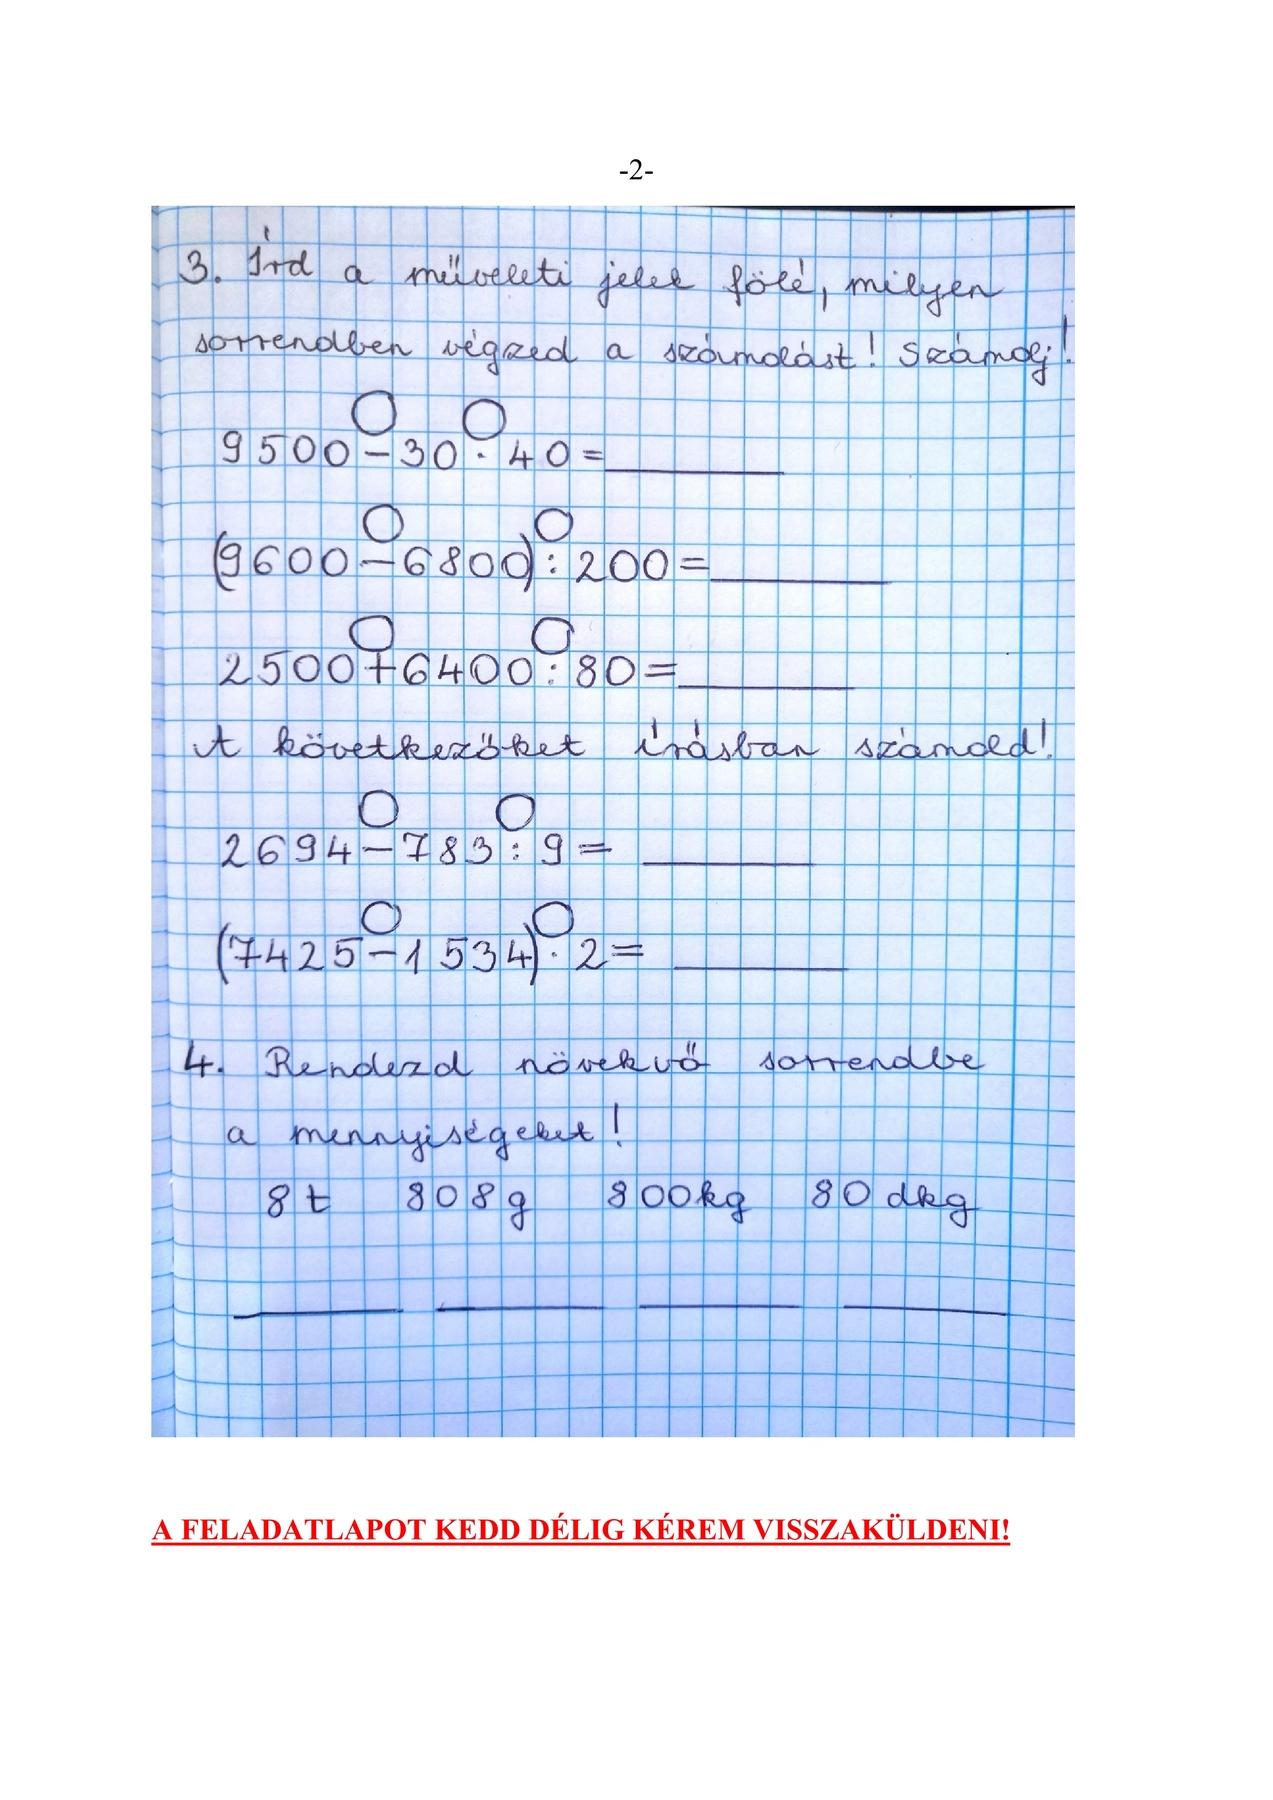 -2-
3. Írd a műveleti jelek fölé, milyen
sorrendben végzed a számolást! Számolj!
9500-30·40=
(9600-6800):200=
2500+6400:80=
A következőket írásban számold!
2694-783:9=
(7425-1534)·2=
4. Rendezd növekvő sorrendbe
a mennyiségeket!
8t 808g 800kg 80 dkg
A FELADATLAPOT KEDD DÉLIG KÉREM VISSZAKÜLDENI!